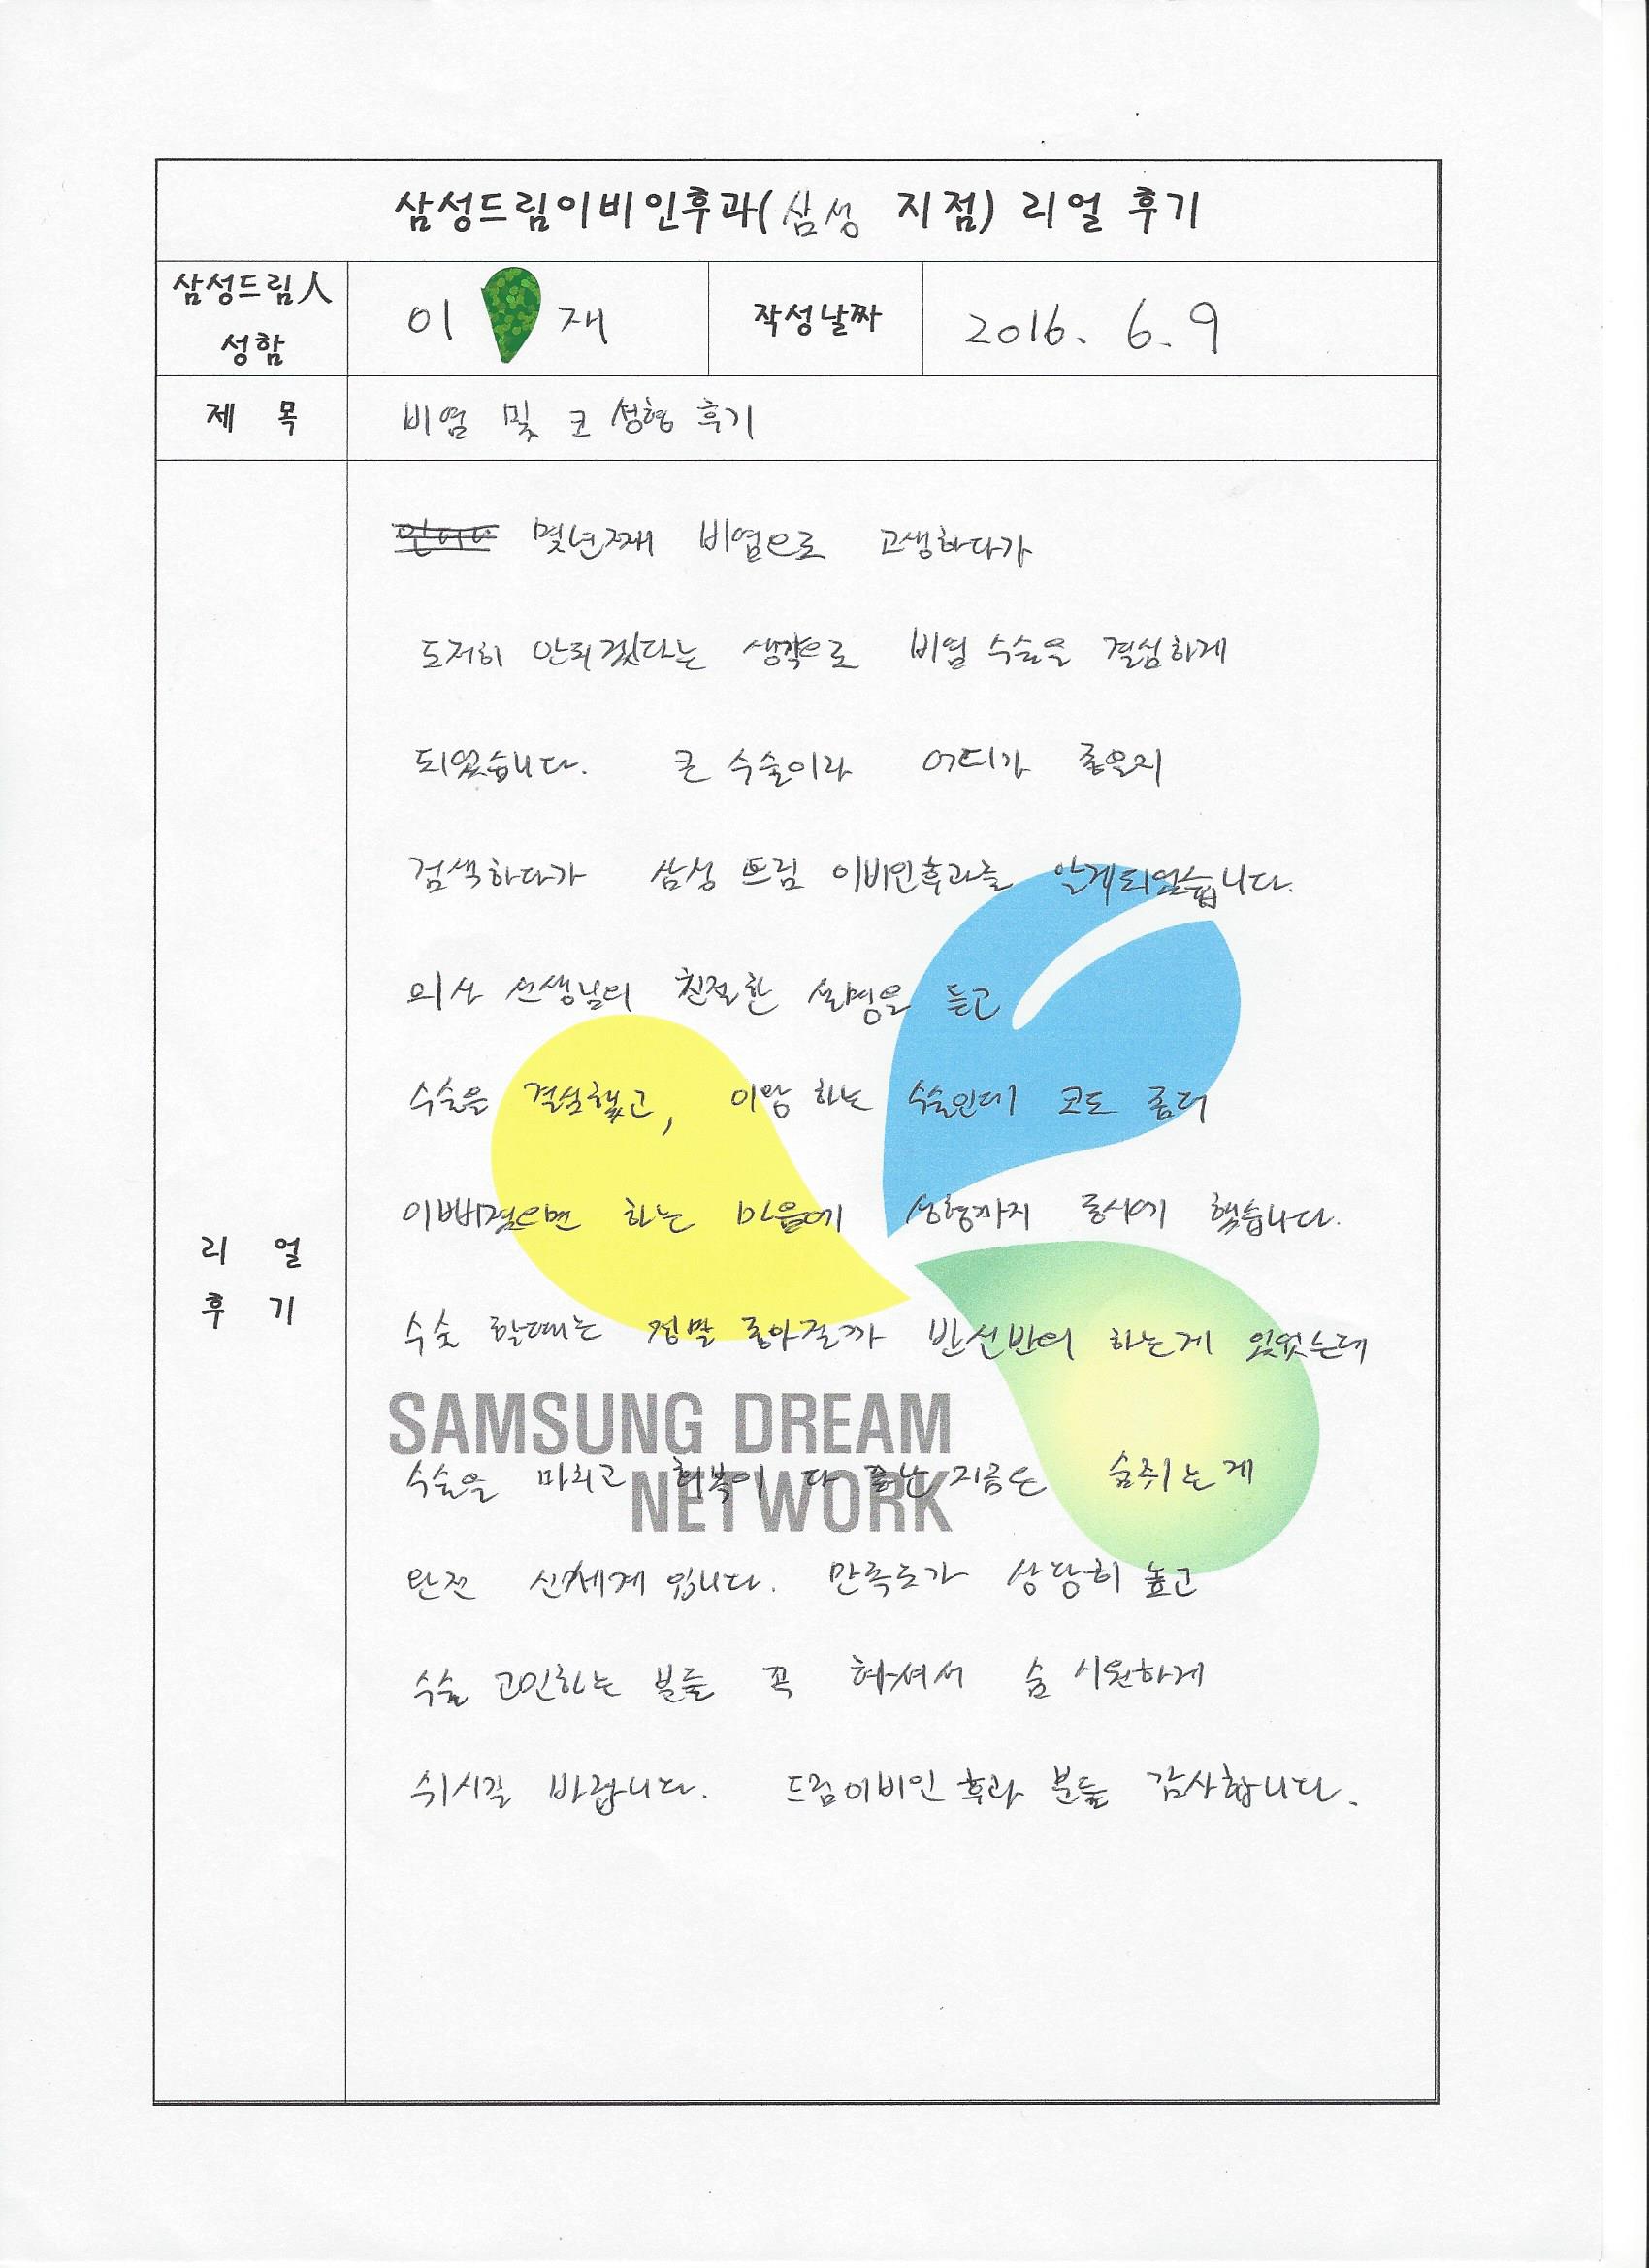 삼성드림이비인후과(삼성 지점) 리얼 후기
삼성드림人 성함
이 재
작성날짜
2016. 6. 9
제 목
비염 및 코 성형 후기
리 얼
후 기
몇년째 비염으로 고생하다가
도저히 안되겠다는 생각으로 비염 수술을 결심하게
되었습니다. 큰 수술이라 어디가 좋을지
검색하다가 삼성 드림 이비인후과를 알게되었습니다.
의사 선생님의 친절한 설명을 듣고
수술을 결심했고, 이왕 하는 수술인데 코도 좀더
이뻐졌으면 하는 마음에 성형까지 동시에 했습니다.
수술 할때는 정말 좋아질까 반신반의 하는게 있었는데
SAMSUNG DREAM
수술을 마치고 회복이 다 끝난 지금은 숨쉬는게
NETWORK
완전 신세계 입니다. 만족도가 상당히 높고
수술 고민하는 분들 꼭 하셔서 숨 시원하게
쉬시길 바랍니다. 드림이비인후과 분들 감사합니다.